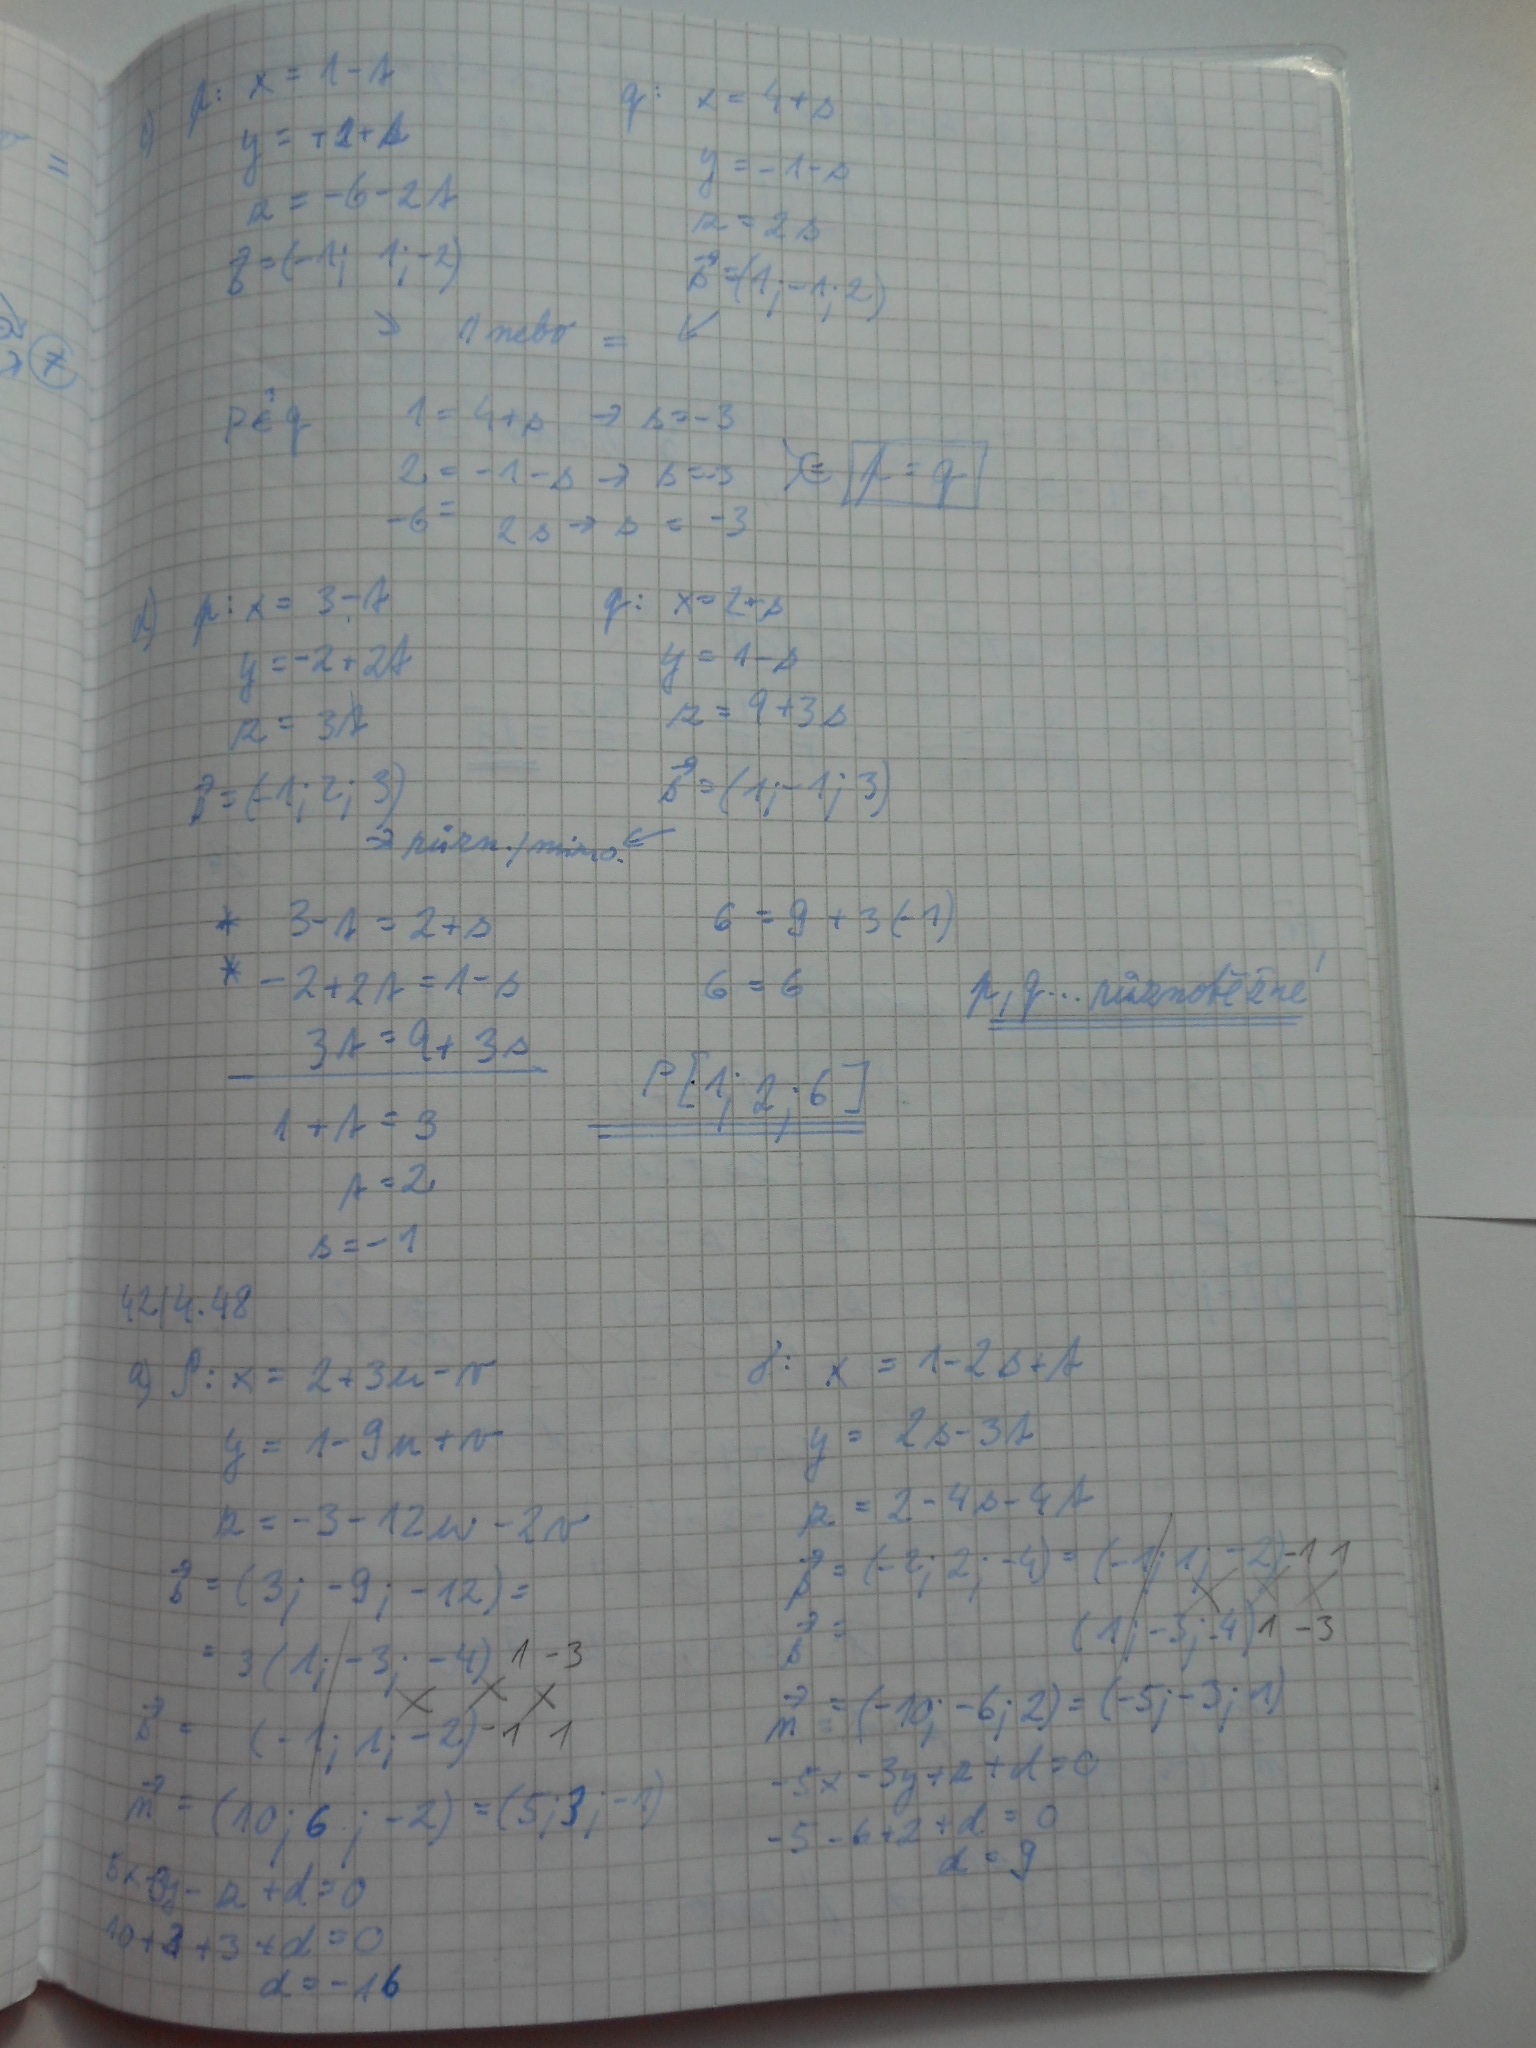 c) p: x = 1-t
y = +2+t
z = -6-2t
s⃗ = (-1; 1; -2)
q: x = 4+s
y = -1-s
z = 2s
s⃗ = (1; -1; 2)
→ // nebo = ↙
P∈q 1 = 4+s → s = -3
2 = -1-s → s = -3 p = q
-6 = 2s → s = -3
d) p: x = 3-t
y = -2+2t
z = 3t
s⃗ = (-1; 2; 3)
q: x = 2+s
y = 1-s
z = 9+3s
s⃗ = (1; -1; 3)
→ různ./mimo. ↙
* 3-t = 2+s
* -2+2t = 1-s
3t = 9+3s
1+t = 3
t = 2
s = -1
6 = 9+3(-1)
6 = 6
P[1; 2; 6]
p, q... různoběžné
42/4.48
a) ρ: x = 2+3u-v
y = 1-9u+v
z = -3-12u-2v
s⃗ = (3; -9; -12) =
= 3(1; -3; -4) 1 -3
s⃗ = (-1; 1; -2) -1 1
n⃗ = (10; 6; -2) = (5; 3; -1)
5x+3y-z+d=0
10+3+3+d=0
d = -16
x = 1-2s+t
y = 2s-3t
z = 2-4s-4t
s⃗ = (-2; 2; -4) = (-1; 1; -2) -1 1
s⃗ = (1; -3; -4) 1 -3
n⃗ = (-10; -6; 2) = (-5; -3; 1)
-5x-3y+z+d=0
-5-6+2+d=0
d = 9